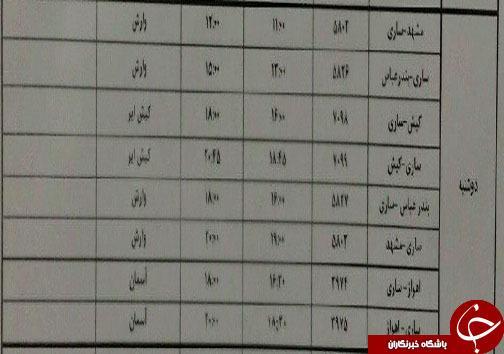 مشهد-ساری ۵۸۰۲ ۱۱:۰۰ ۱۲:۰۰ وارش
ساری-بندرعباس ۵۸۲۶ ۱۳:۰۰ ۱۵:۰۰ وارش
کیش-ساری ۷۰۹۸ ۱۶:۰۰ ۱۸:۰۰ کیش ایر
ساری-کیش ۷۰۹۹ ۱۸:۴۵ ۲۰:۴۵ کیش ایر
دوشنبه
بندر عباس-ساری ۵۸۲۷ ۱۶:۰۰ ۱۸:۰۰ وارش
ساری-مشهد ۵۸۰۳ ۱۹:۰۰ ۲۰:۰۰ وارش
اهواز-ساری ۳۹۷۴ ۱۶:۳۰ ۱۸:۰۰ آسمان
ساری-اهواز ۳۹۷۵ ۱۸:۳۰ ۲۰:۰۰ آسمان
باشگاه خبرنگاران